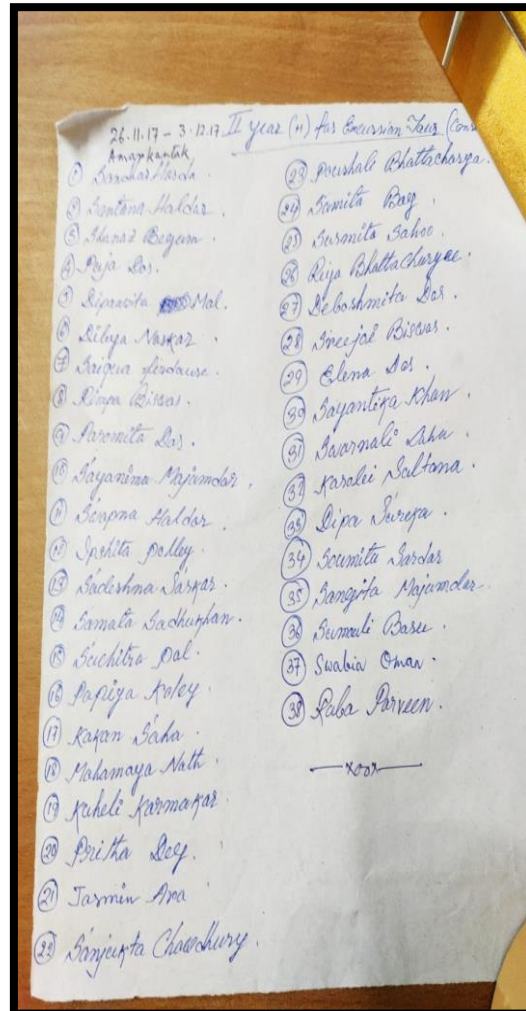 26.11.17 - 3.12.17 II year (H) for Excursion Tour (Cons
Amarkantak,
① Hasda
② Santana Haldar.
③ Shanaz Begum.
④ Puja Das.
⑤ Dipanwita Mal.
⑥ Dibya Naskar
⑦ Firdause.
⑧ Rimpa Biswas.
⑨ Paromita Das.
⑩ Sayanima Majumdar.
⑪ Swapna Haldar.
⑫ Ipshita Polley.
⑬ Sudeshna Sarkar.
⑭ Samata Sadhukhan.
⑮ Suchitra Pal.
⑯ Papiya Koley.
⑰ Kakan Saha.
⑱ Mahamaya Nath.
⑲ Kuheli Karmakar.
⑳ Pritha Dey.
㉑ Jasmin Ara
㉒ Sanjukta Chowdhury.
㉓ Poushali Bhattacharya.
㉔ Samita Bag.
㉕ Susmita Sahoo.
㉖ Riya Bhattacharyee.
㉗ Debashmita Das.
㉘ Biswas.
㉙ Elena Das.
㉚ Sayantika Khan.
㉛ Swarnali Sahu.
㉜ Sultana.
㉝ Dipa Sureka.
㉞ Soumita Sardar
㉟ Sangita Majumdar.
㊱ Sumouli Basu.
㊲ Swabia Oman.
㊳ Raba Parveen.